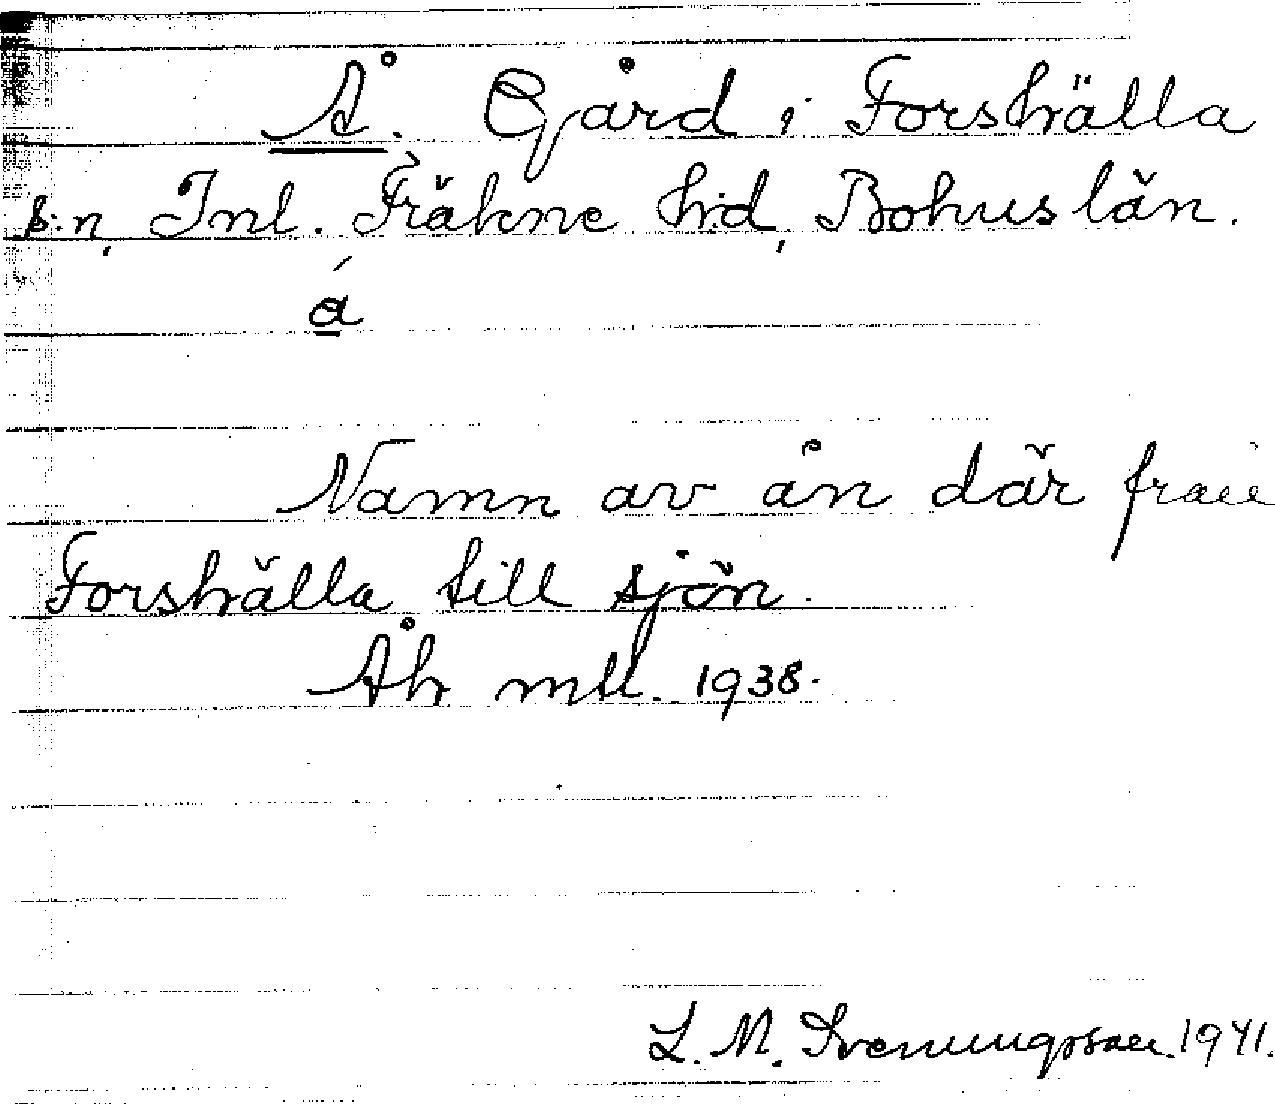 Å. Gård i Forshälla
s:n, Inl. Fräkne hd, Bohuslän.
á
Namn av ån där från
Forshälla till sjön.
Åh mtl. 1938.
L. M. Svenungsson. 1941.